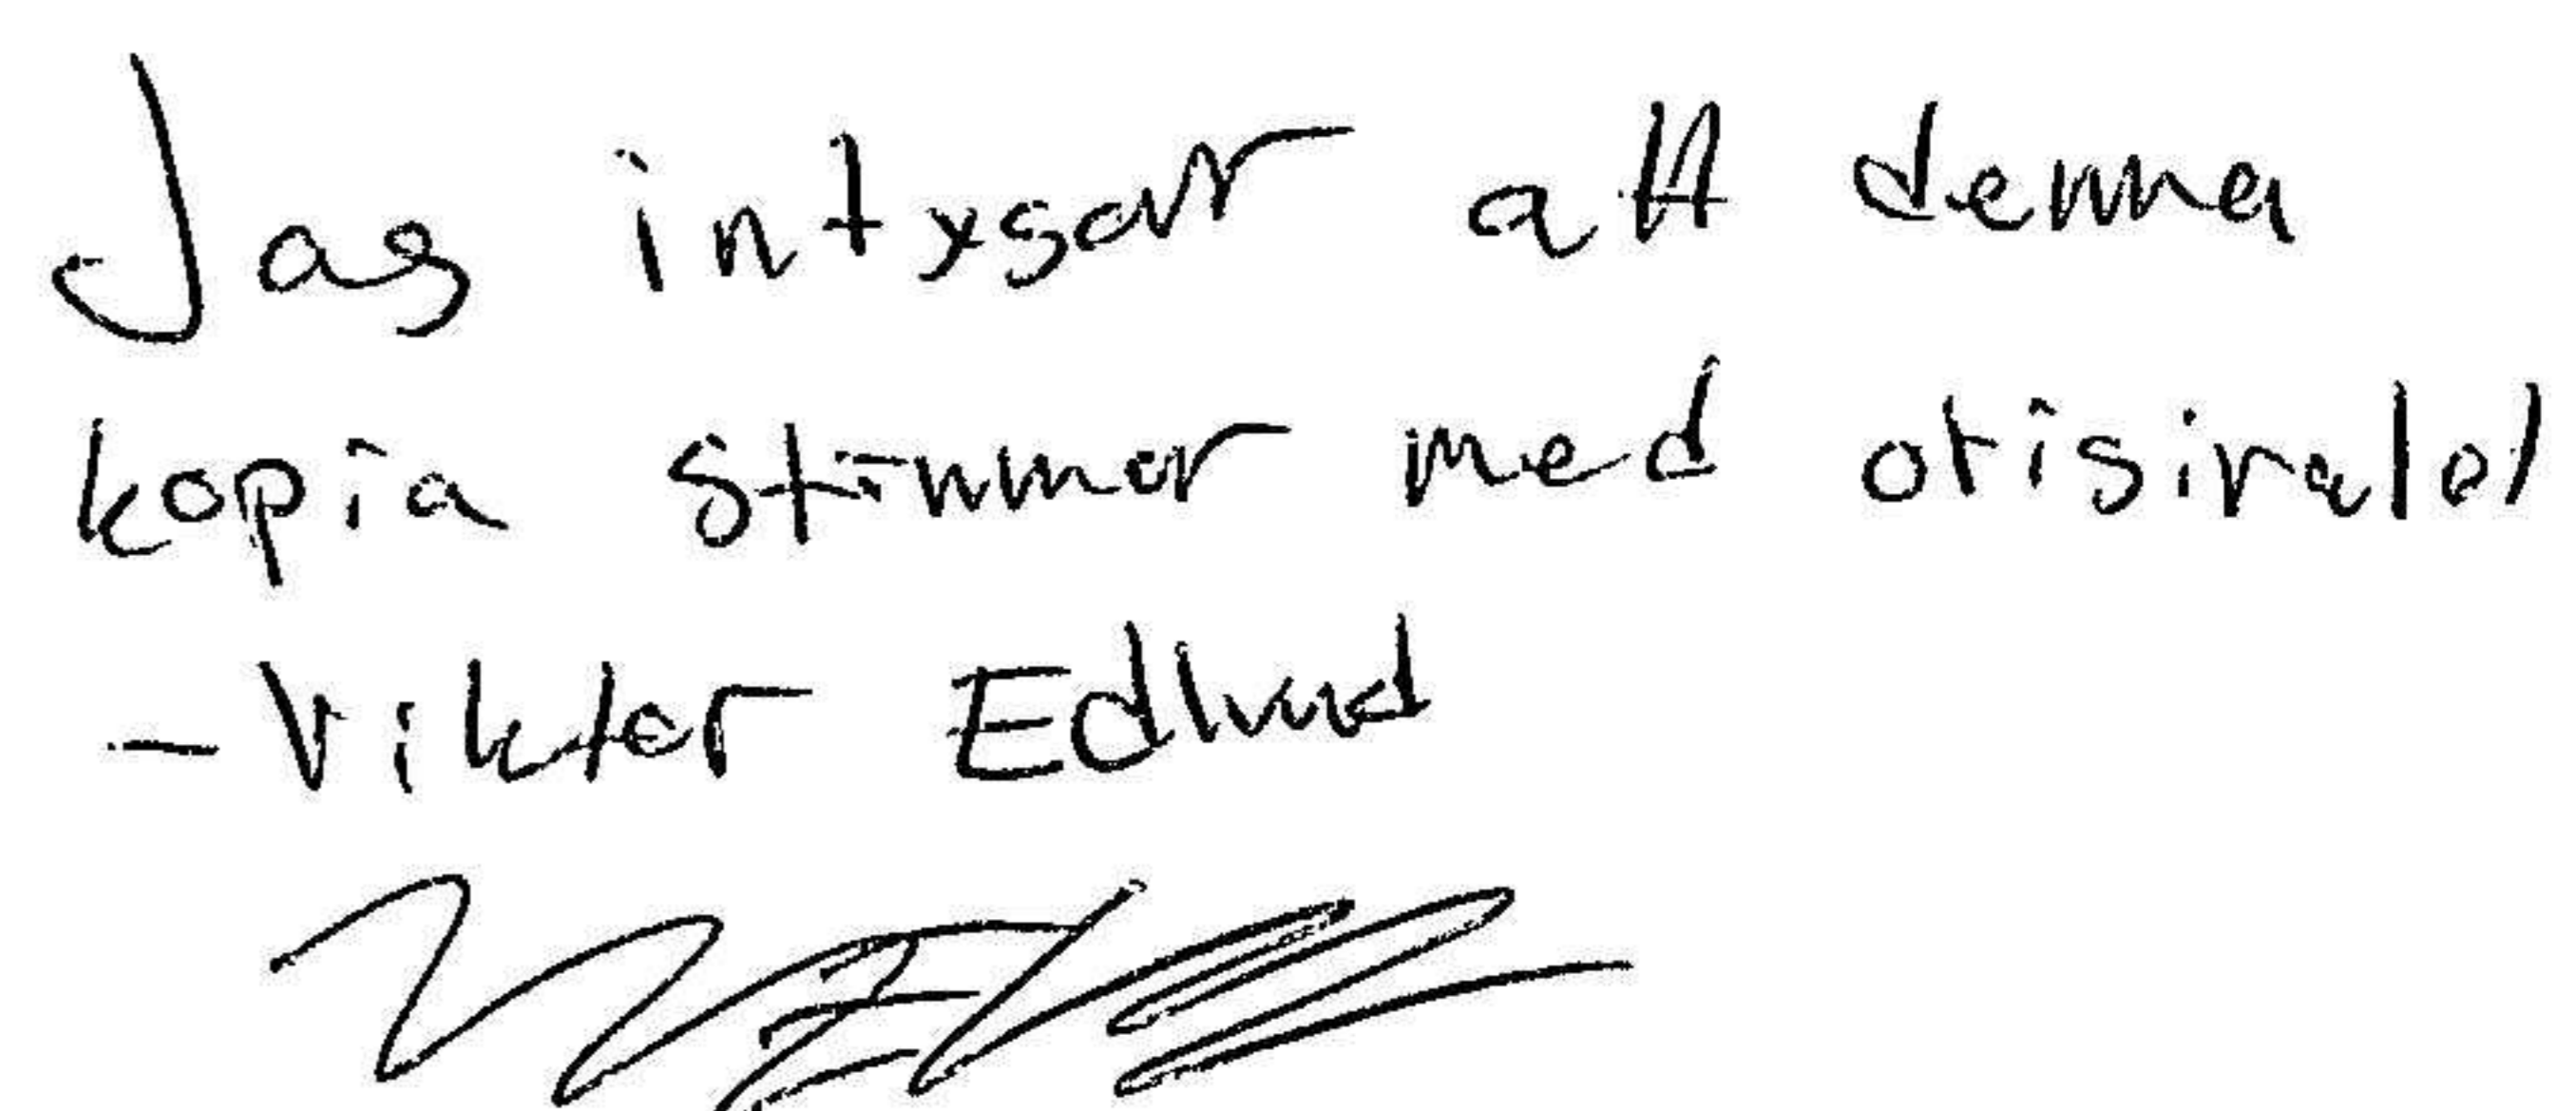 Jag intygar att denna
kopia stämmer med originalet
- Viktor Edlund